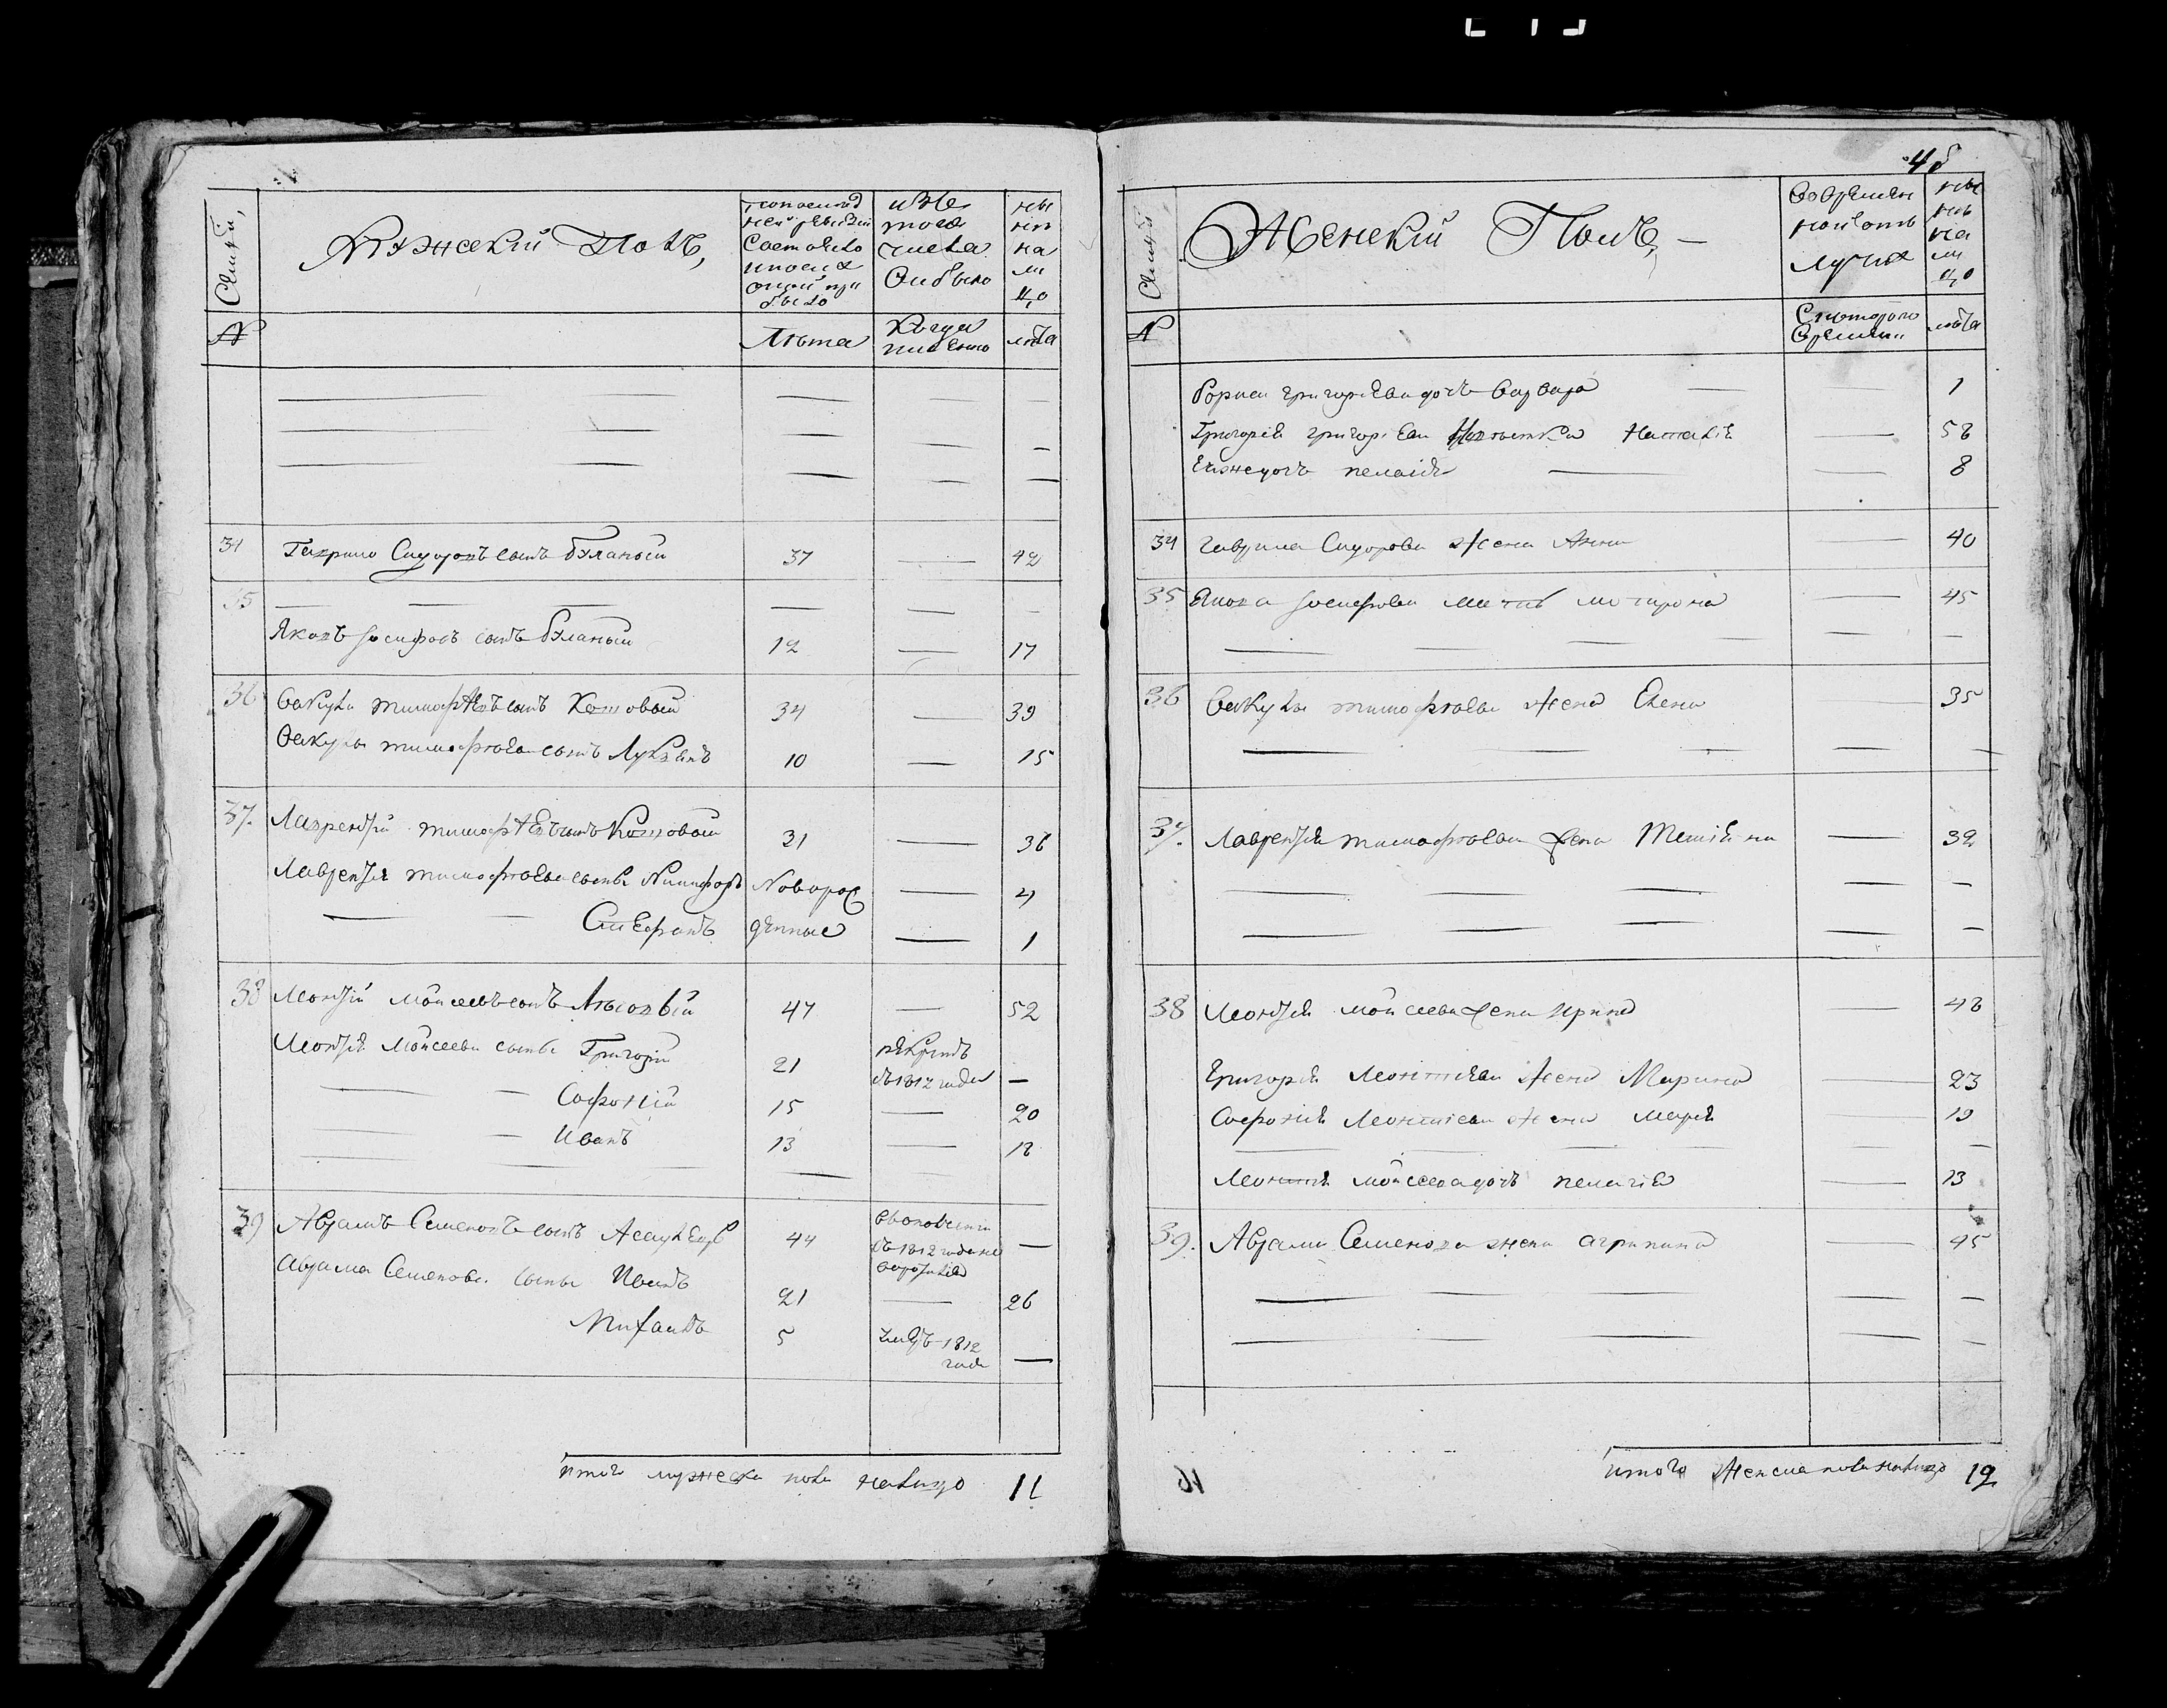 Семьи,
Мужескій Полъ,
По послед
ней ревизіи
Состояло
и после
оной при
было
изъ
того
числа
Выбыло
ны
нѣ
на
ли
цо
№
Лѣта
Когда
имянно
лѣта
34 Гаврило Сидоровъ сынъ Буланый 37 — 42
35 — — — — —
Яковъ Iосифовъ сынъ Буланый 12 — 17
36 Вакула тимофѣевъ сынъ Котовый 34 — 39
Вакулы тимофѣева сынъ Лукъянъ 10 — 15
37. Лаврентій тимофѣевъ сынъ Котовый 31 — 36
Лаврентія тимофѣева сынъ Никифоръ Новорож — 4
— — Стефанъ денные — 1
38 Леонтій Мойсеевъ сынъ Лысовый 47 — 52
Леонтія Мойсеева сынъ Григорій 21 рекрутъ
въ 1812 года —
— — Софоній 15 — 20
— — Иванъ 13 — 18
39 Аврамъ Семеновъ сынъ 44 въ 1812 года —
Аврама Семенова сынъ Иванъ 21 — 26
Михаилъ 5 умеръ 1812
года —
итого мужеска пола налицо 11
45
Семьи
Женскій Полъ, —
Во времен
ной отъ
лучке
ны
нѣ
на
ли
цо
№
С котораго
времени
лѣта
Григорьева дочь варвара — — 1
Григорія григорьева Наталія — 58
Ихже дочь пелагія — — 8
34 Гаврила Сидорова жена Анна — 40
35 Якова Iосифова мать мотрона — 45
— — — — — —
36 Вакулы тимофѣева жена Елена 35
— — — — —
37. Лаврентія тимофѣева жена Татіяна — 32
— — — — —
— — — — —
38 Леонтія мойсеева жена ирина — 48
Григорія Леонтіева жена Марина — 23
Софонія Леонтіева жена марія — 19
— — — — —
Леонтія мойсеева дочь пелагія — 13
39. Аврама Семенова жена агрипина — 45
— — — — —
— — — — —
итого женска пола налицо 12